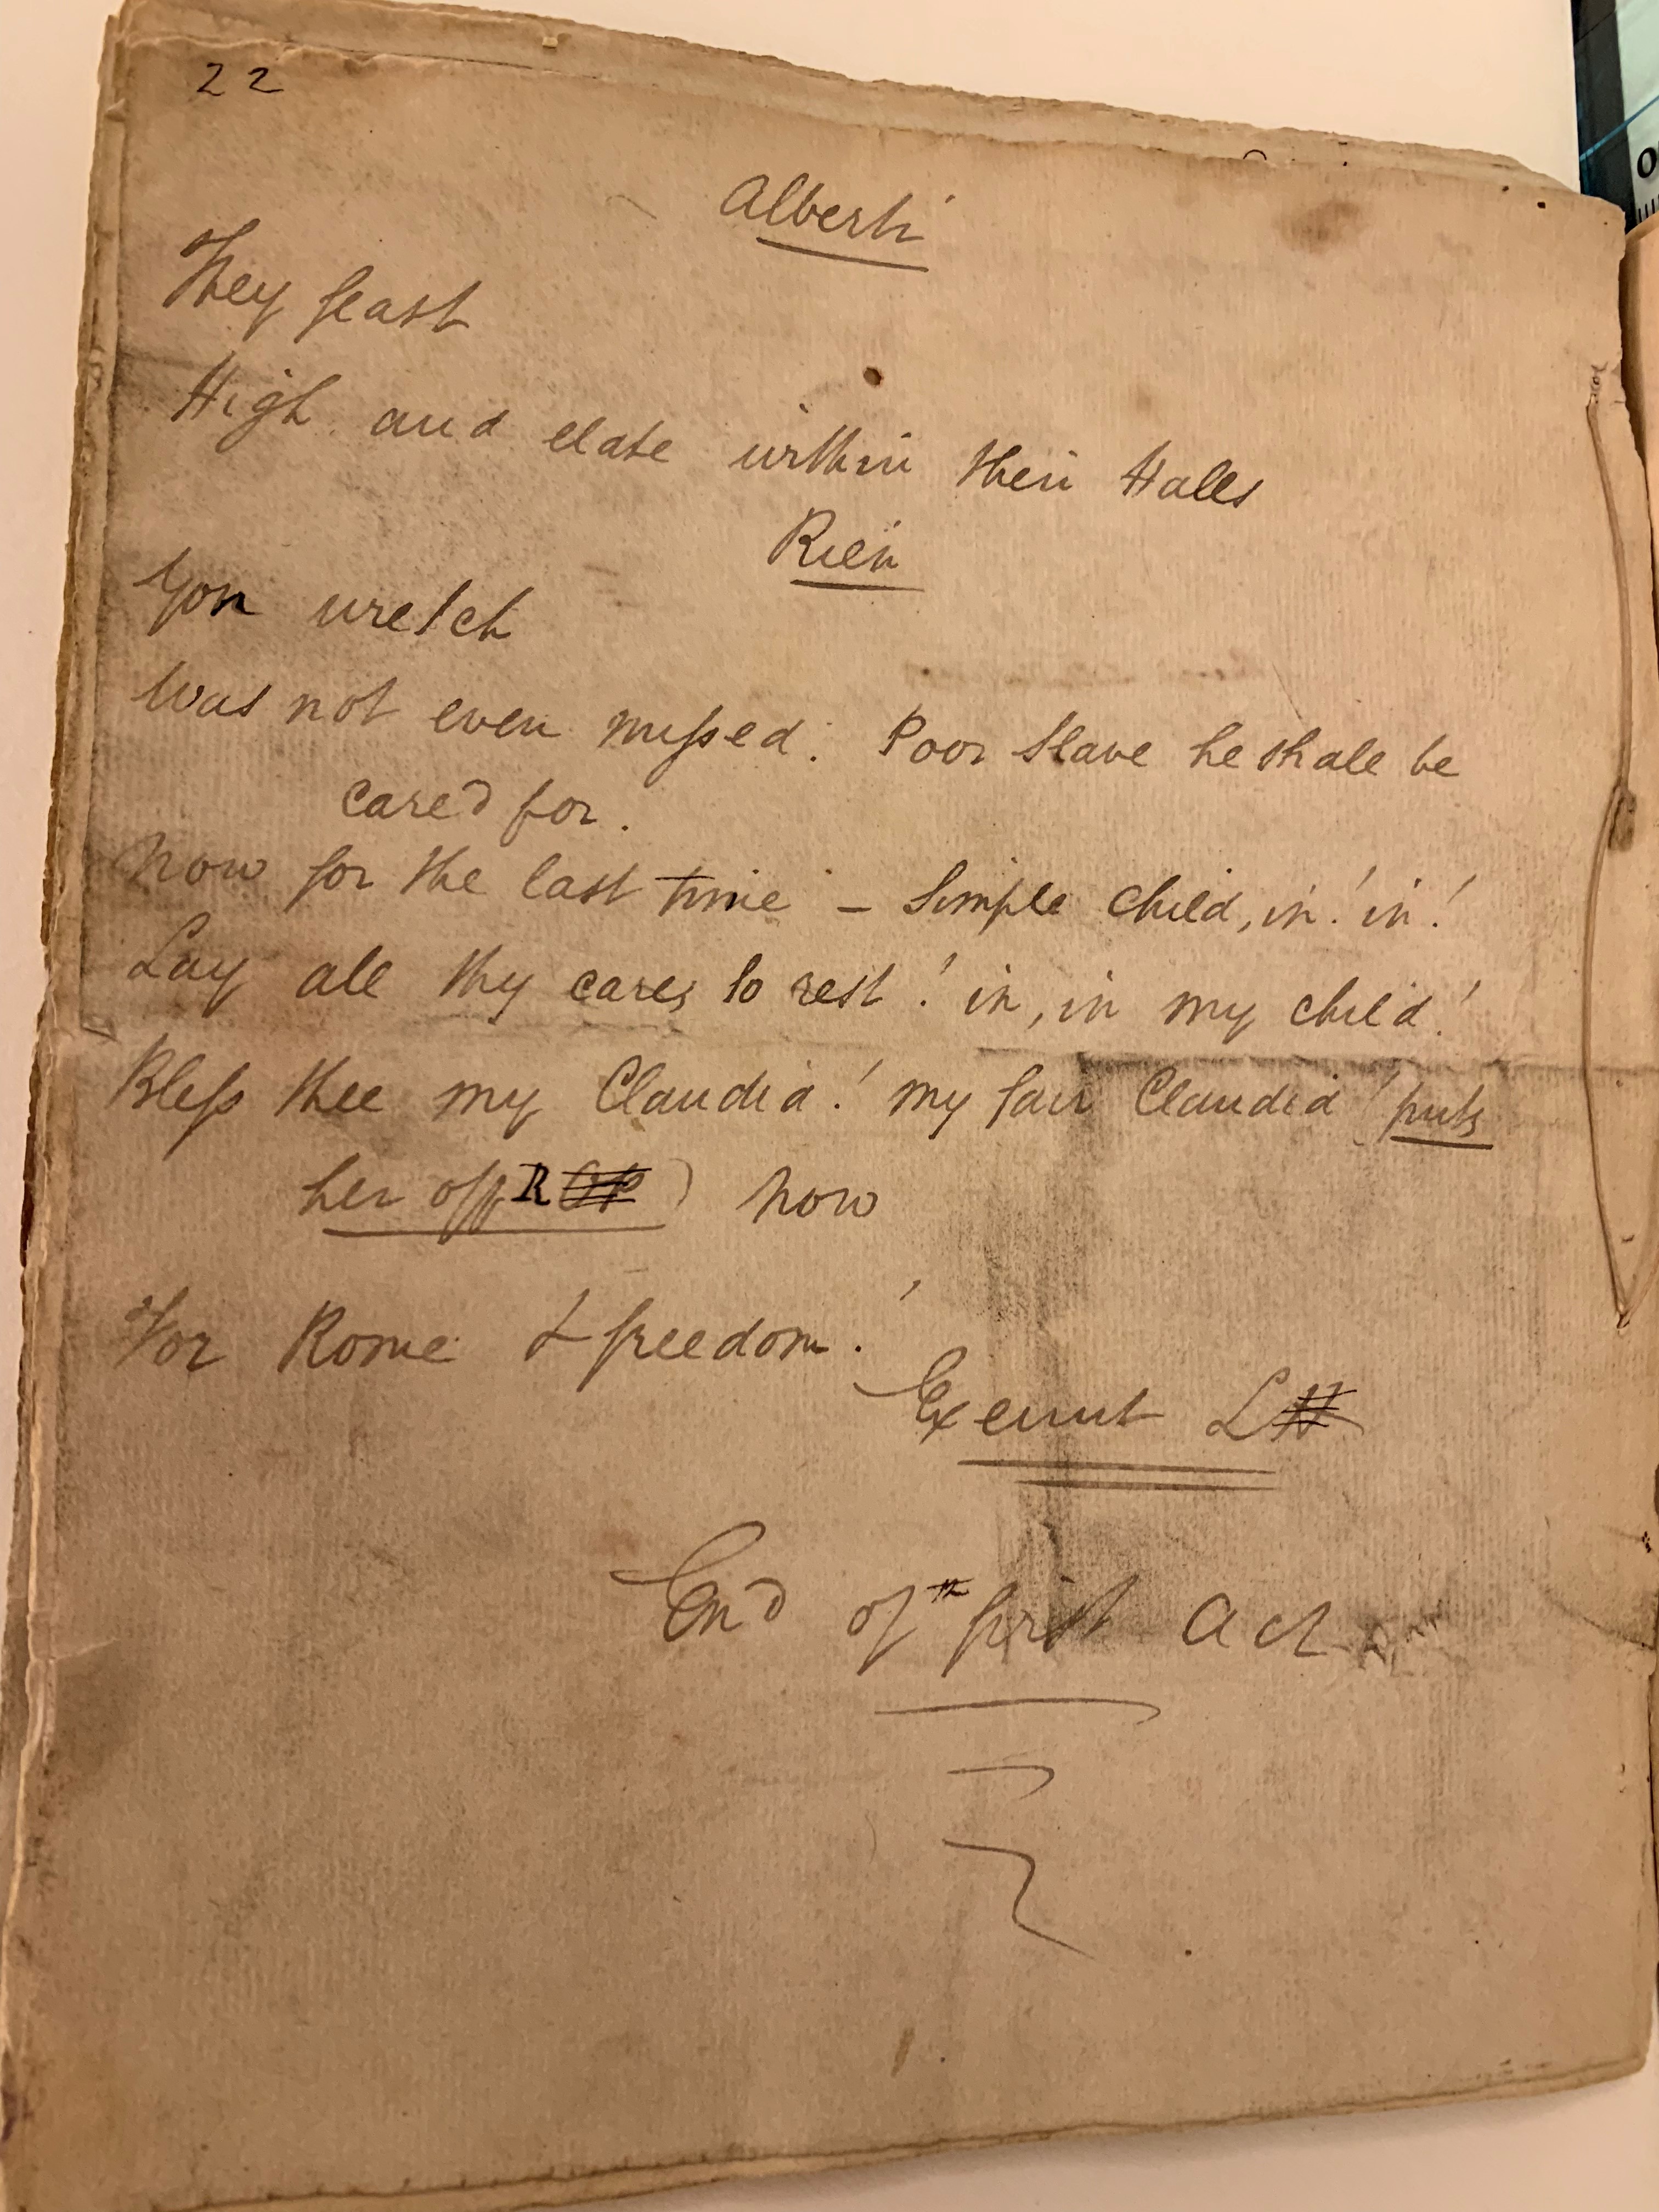 22
Alberti
They feast
High and elate within their Halls
Rien
Yon wretch
Was not even missed. Poor Slave he shall be
cared for.
Now for the last time – Simple Child, in! in!
Lay all thy cares to rest! in, in my child!
Bless thee my Claudia! my fair Claudia! (puts
her off R) now
For Rome & freedom!
Exeunt L
End of first Act